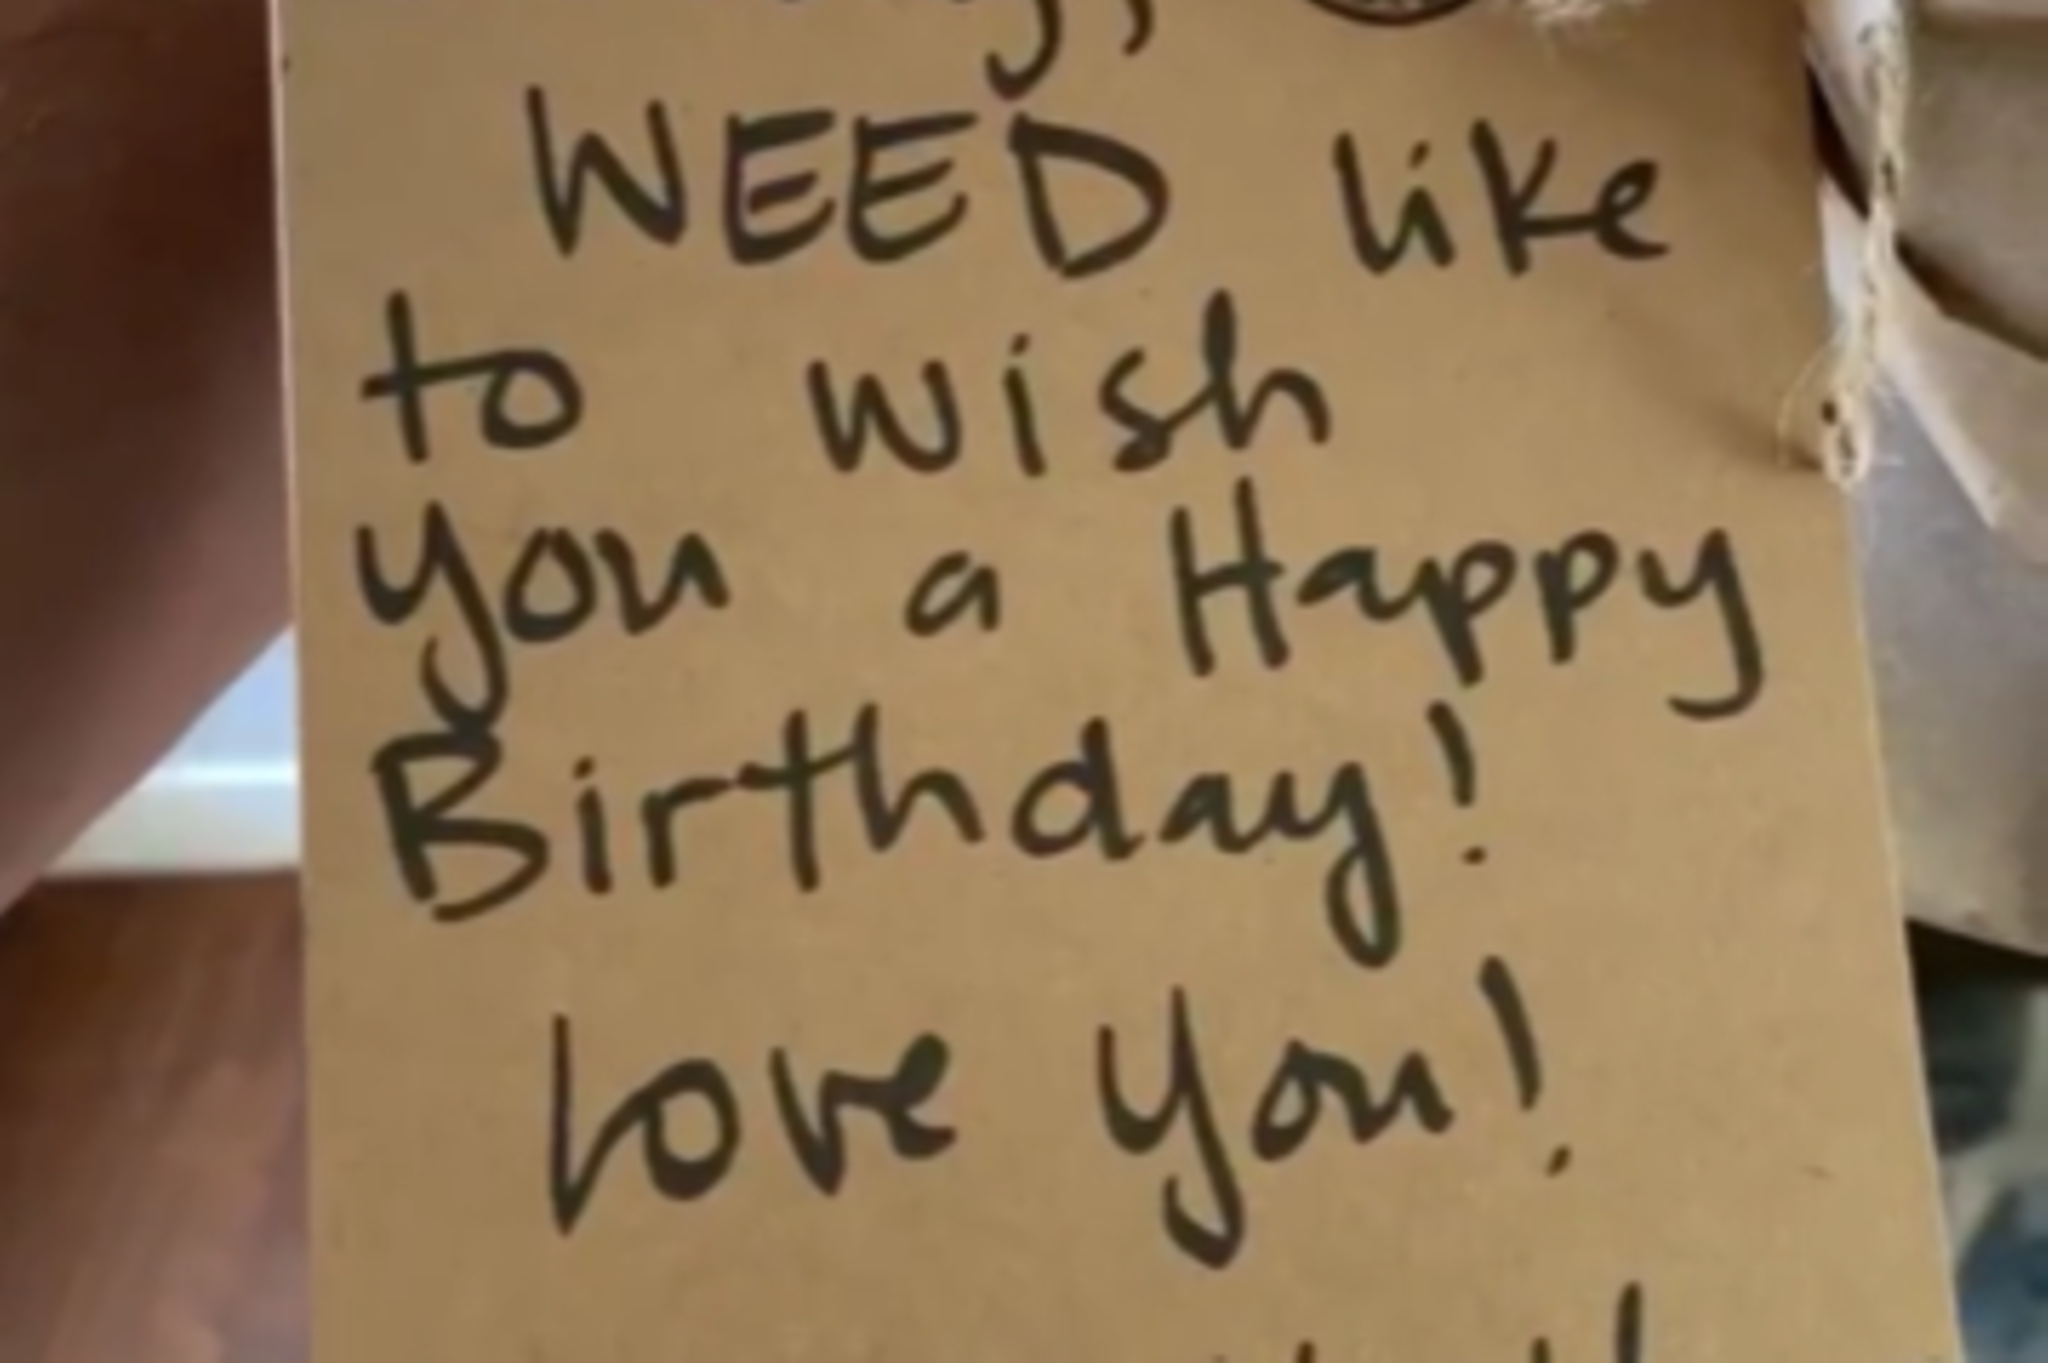 WEED like
to wish
you a Happy
Birthday!
Love you!